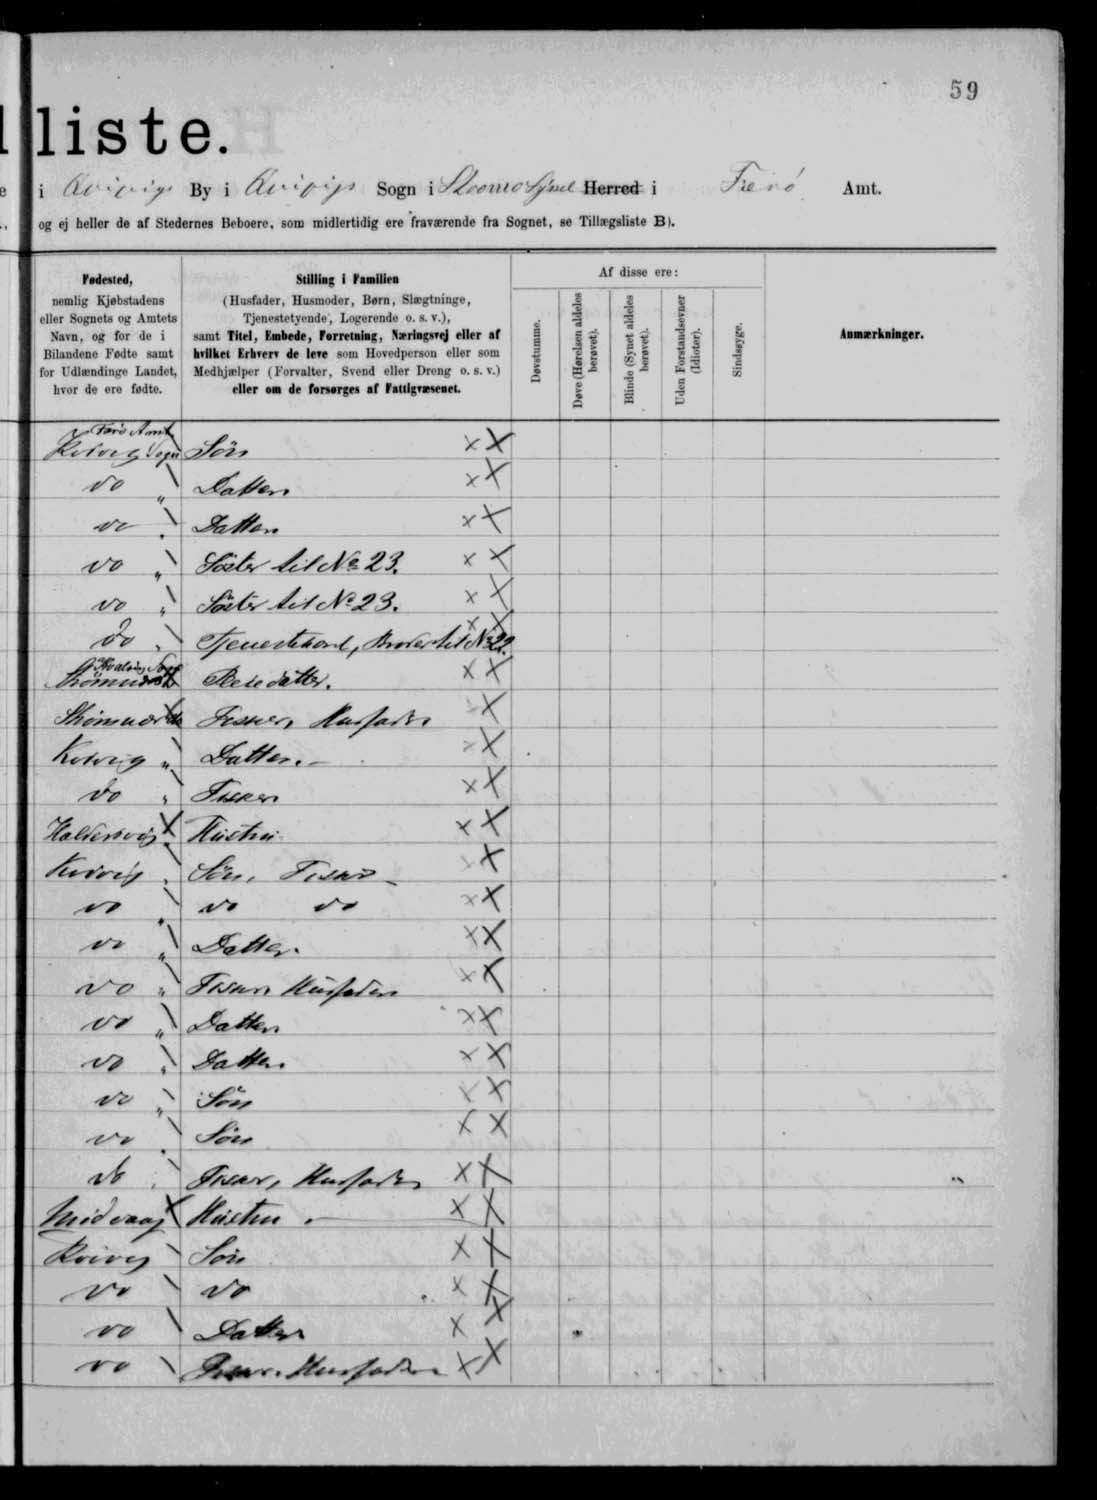 59
liste.
i Qvivigs By i Qvivigs Sogn i Strømø Syssel Herred i Færø Amt.
og ej heller de af Stedernes Beboere, som midlertidig ere fraværende fra Sognet, se Tillægsliste B).
Fødested,
nemlig Kjøbstadens
eller Sognets og Amtets
Navn, og for de i
Bilandene Fødte samt
for Udlændinge Landet,
hvor de ere fødte.
Stilling i Familien
(Husfader, Husmoder, Børn, Slægtninge,
Tjenestetyende, Logerende o. s. v.),
samt Titel, Embede, Forretning, Næringsvej eller af
hvilket Erhverv de leve som Hovedperson eller som
Medhjælper (Forvalter, Svend eller Dreng o. s. v.)
eller om de forsørges af Fattigvæsenet.
Af disse ere:
Døvstumme.
Døve (Hørelsen aldeles
berøvet).
Blinde (Synet aldeles
berøvet).
Uden Forstandsevner
(Idioter).
Sindssyge.
Anmærkninger.
Færø Amt
Kvivig Sogn Sön
do " Datter
do " Datter
do " Söster til No 23.
do " Söster til No 23.
do " Tjenestekarl, Broder til No 22.
Strømnæs Pleiedatter.
Strømnæs Fisker, Husfader
Kvivig " Datter.
do " Fisker
Haldersvig Hustru
Kvivig " Sön, Fisker
do " do do
do " Datter
do " Fisker Husfader
do " Datter
do " Datter
do " Sön
do " Sön
do " Fisker, Husfader
Midvaag Hustru
Kvivig Sön
do do
do Datter
do Fisker. Husfader